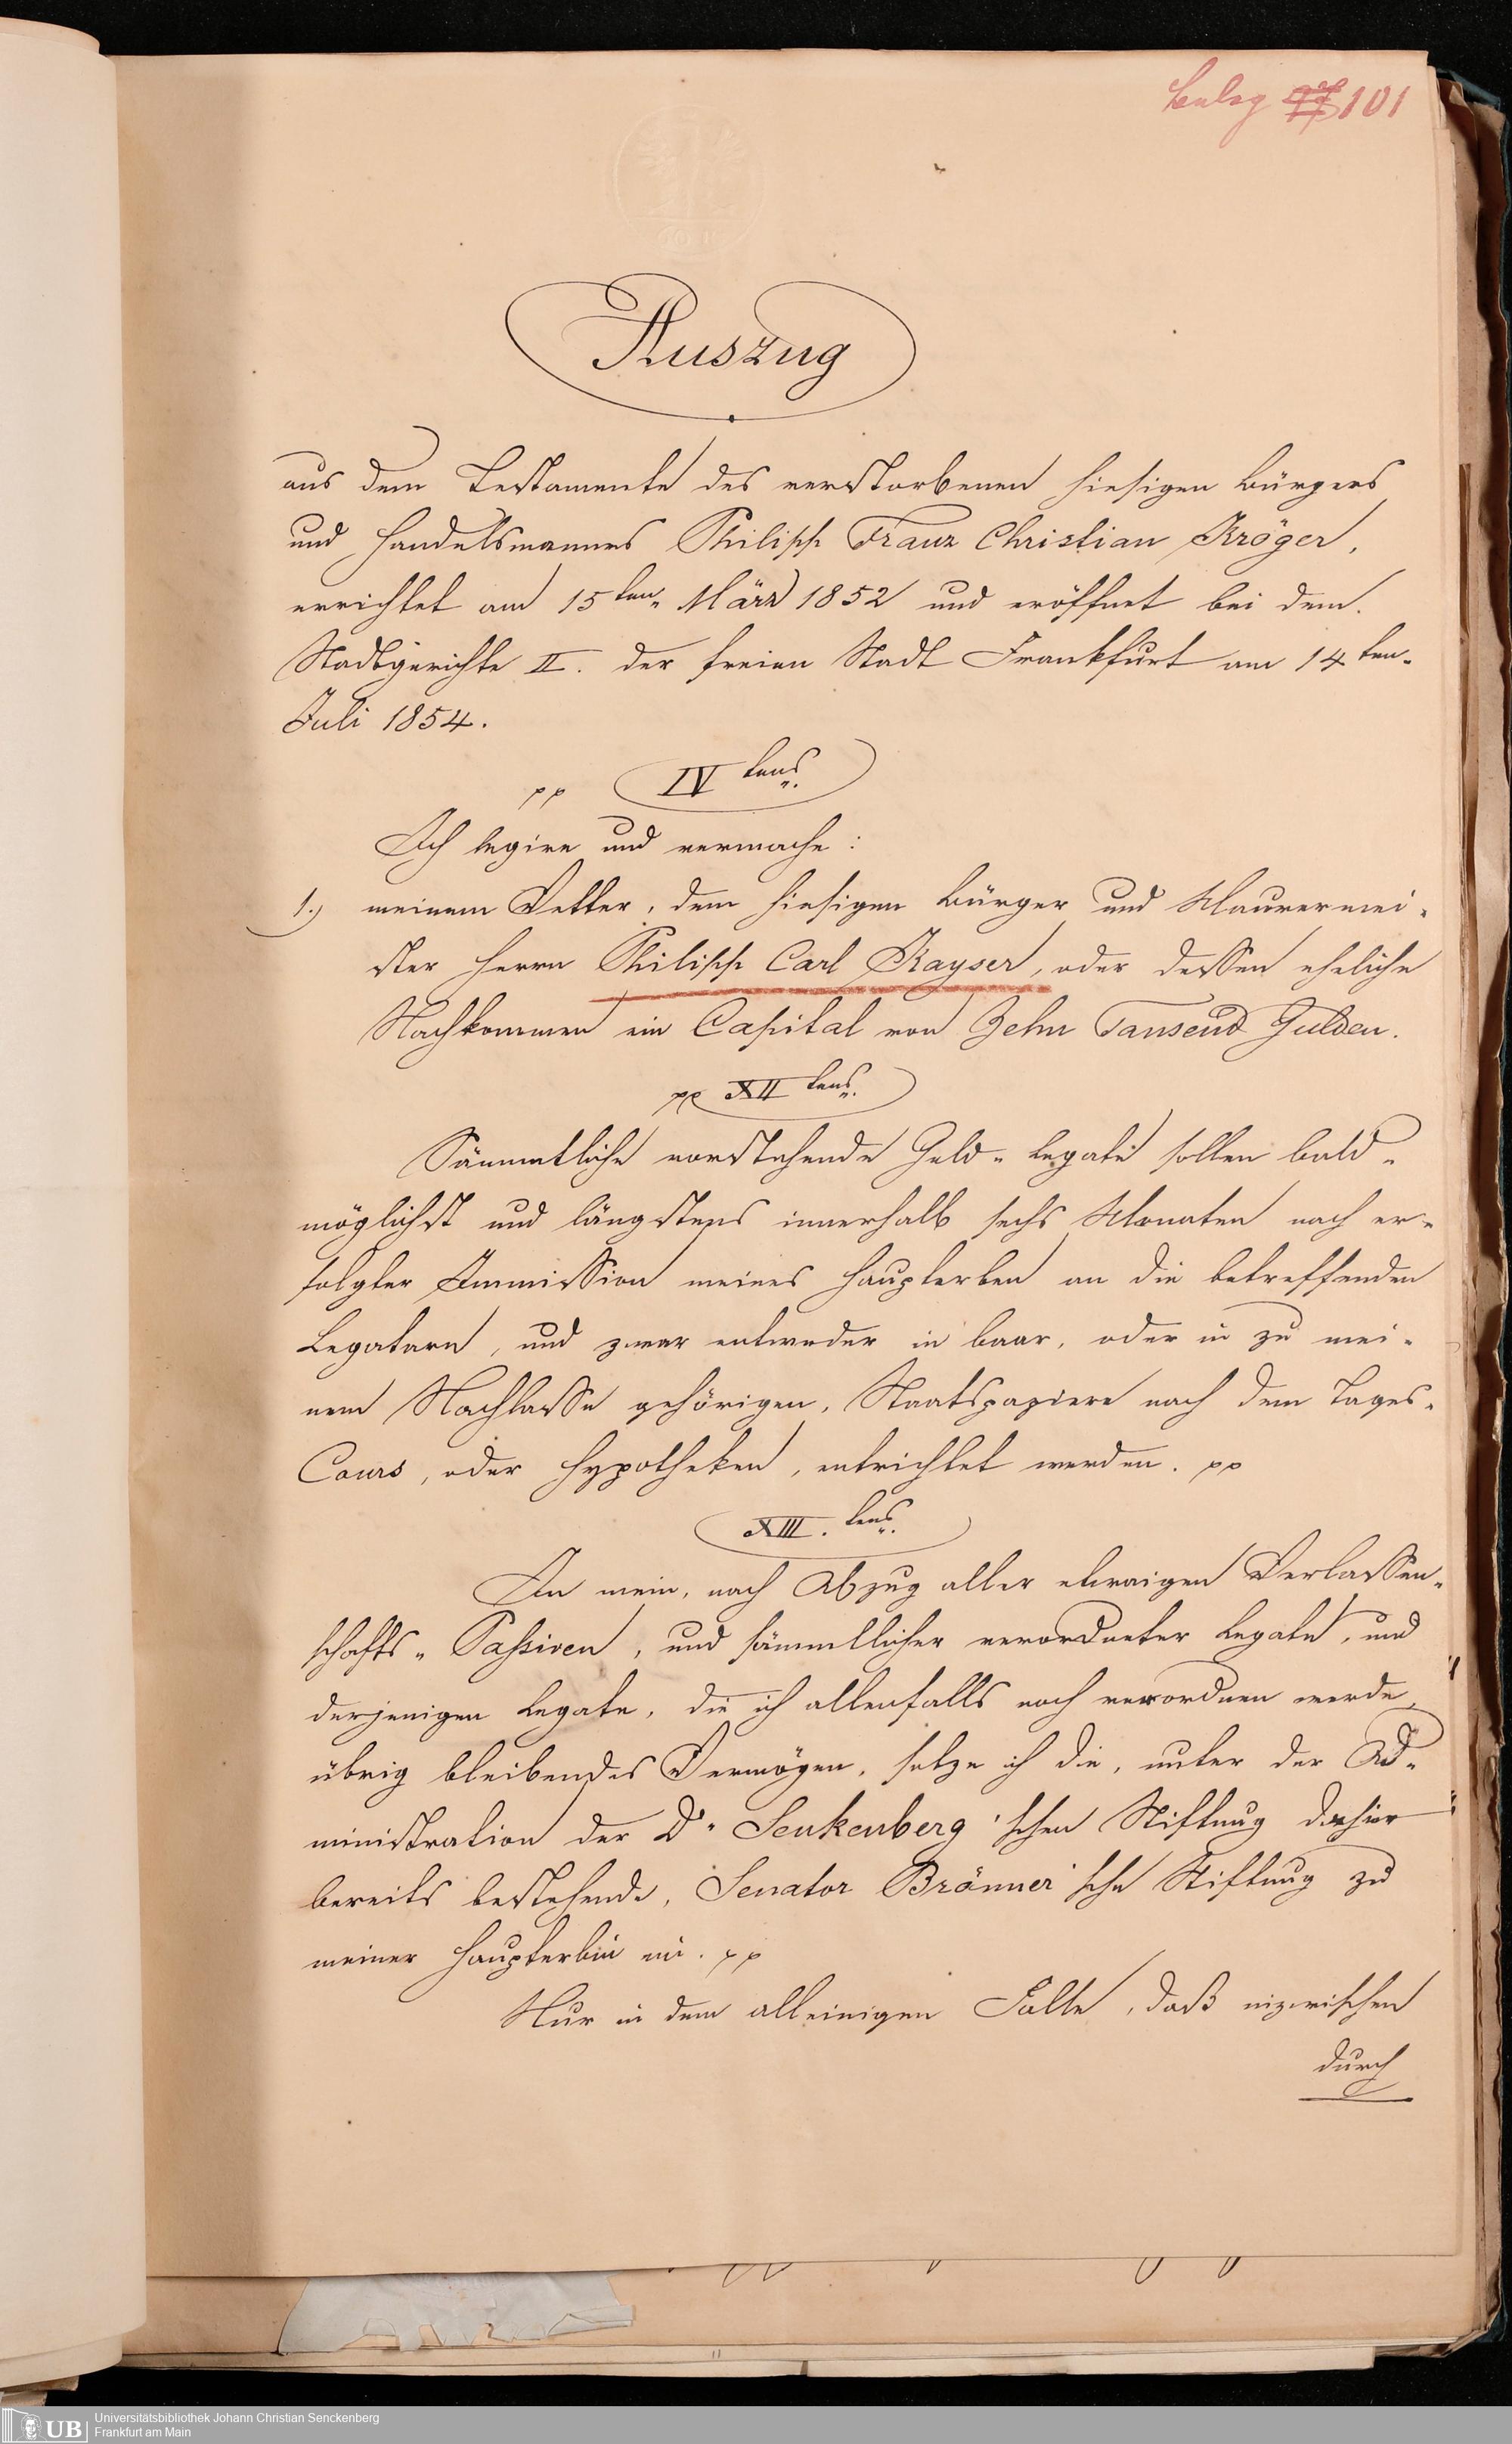 Beleg 101
Auszug
aus dem Testamente des verstorbenen hiesigen Bürgers
und Handelsmannes Philipp Franz Christian Kröger,
errichtet am 15ten März 1852 und eröffnet bei dem
Stadtgerichte II. der freien Stadt Frankfurt am 14ten
Juli 1854.
pp IVtens.
Ich legire und vermache:
1.) meinem Vetter, dem hiesigen Bürger und Maurermei-
ster Herrn Philipp Carl Kayser, oder dessen eheliche
Nachkommen ein Capital von Zehn Tausend Gulden.
pp XIItens.
Sämmtliche vorstehende Geld-Legate sollen bald-
möglichst und längstens innerhalb sechs Monaten nach er-
folgter Immission meines Haupterben an die betreffenden
Legatare, und zwar entweder in baar, oder in zu mei-
nem Nachlasse gehörigen, Staatspapiere nach dem Tages-
Cours, oder Hypotheken, entrichtet werden. pp
XIII.tens.
In mein, nach Abzug aller etwaigen Verlassen-
schafts-Passiven, und sämmtlicher verordneter Legate, und
derjenigen Legate, die ich allenfalls noch verordnen werde,
übrig bleibendes Vermögen, setze ich die, unter der Ad-
ministration der Dr. Senkenberg'schen Stiftung dahier
bereits bestehende, Senator Brönner'sche Stiftung zu
meiner Haupterbin ein. pp
Nur in dem alleinigen Falle, daß inzwischen
durch
UB Universitätsbibliothek Johann Christian Senckenberg
Frankfurt am Main